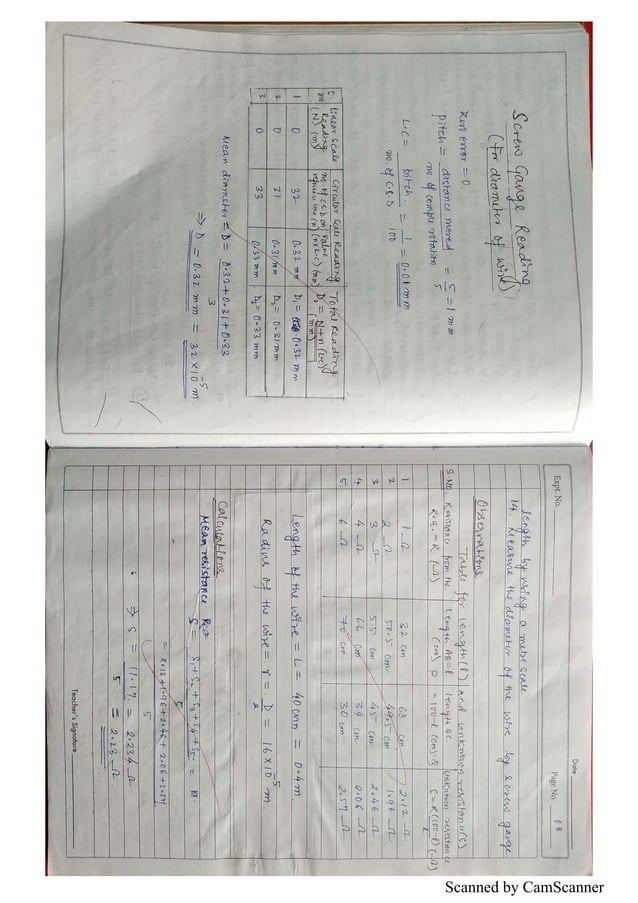 Screw Gauge Reading
(for diameter of wire)
Zero error = 0
Pitch = distance moved / no of comple rotation = 5/5 = 1 mm
L.C = pitch / no. of C.S.D = 1/100 = 0.01 mm
S. no | Linear Scale Reading (N) (m) | Circular Scale Reading | Total Reading
no. of C.S.D on reference line (n) | value (n×L.C) (mm) | D₀ = N+n (L.C) (mm)
1 | 0 | 32 | 0.32 mm | D₁ = 0.32 mm
2 | 0 | 31 | 0.31 mm | D₂ = 0.31 mm
3 | 0 | 33 | 0.33 mm | D₃ = 0.33 mm
Mean diameter = D = 0.32 + 0.31 + 0.33 / 3
⇒ D = 0.32 mm = 32 × 10⁻⁵ m.
Date
Expt. No.
Page No. 08
length by using a metre scale
14. Measure the diameter of the wire by screw gauge
Observations
Table for length (l) and unknown resistance (S)
S.NO. | Resistance from the R.B. = R (Ω) | Length AB = l (cm) | length BC = 100-l (cm) | unknown resistance S = R(100-l)/l (Ω)
1. | 1 Ω | 32 cm | 68 cm | 2.12 Ω
2 | 2 Ω | 50.5 cm | 49.5 cm | 1.96 Ω
3 | 3 Ω | 55 cm | 45 cm | 2.46 Ω
4. | 4 Ω | 66 cm | 34 cm | 2.06 Ω
5. | 6 Ω | 70 cm | 30 cm | 2.57 Ω
Length of the wire = L = 40 cm = 0.4 m
Radius of the wire = r = D/2 = 16 × 10⁻⁵ m
Calculations
Mean resistance
S = S₁ + S₂ + S₃ + S₄ + S₅ / 5
= 2.12 + 1.96 + 2.46 + 2.06 + 2.57 / 5
⇒ S = 11.17 / 5 = 2.234 Ω
= 2.23 Ω
Teacher's Signature
Scanned by CamScanner